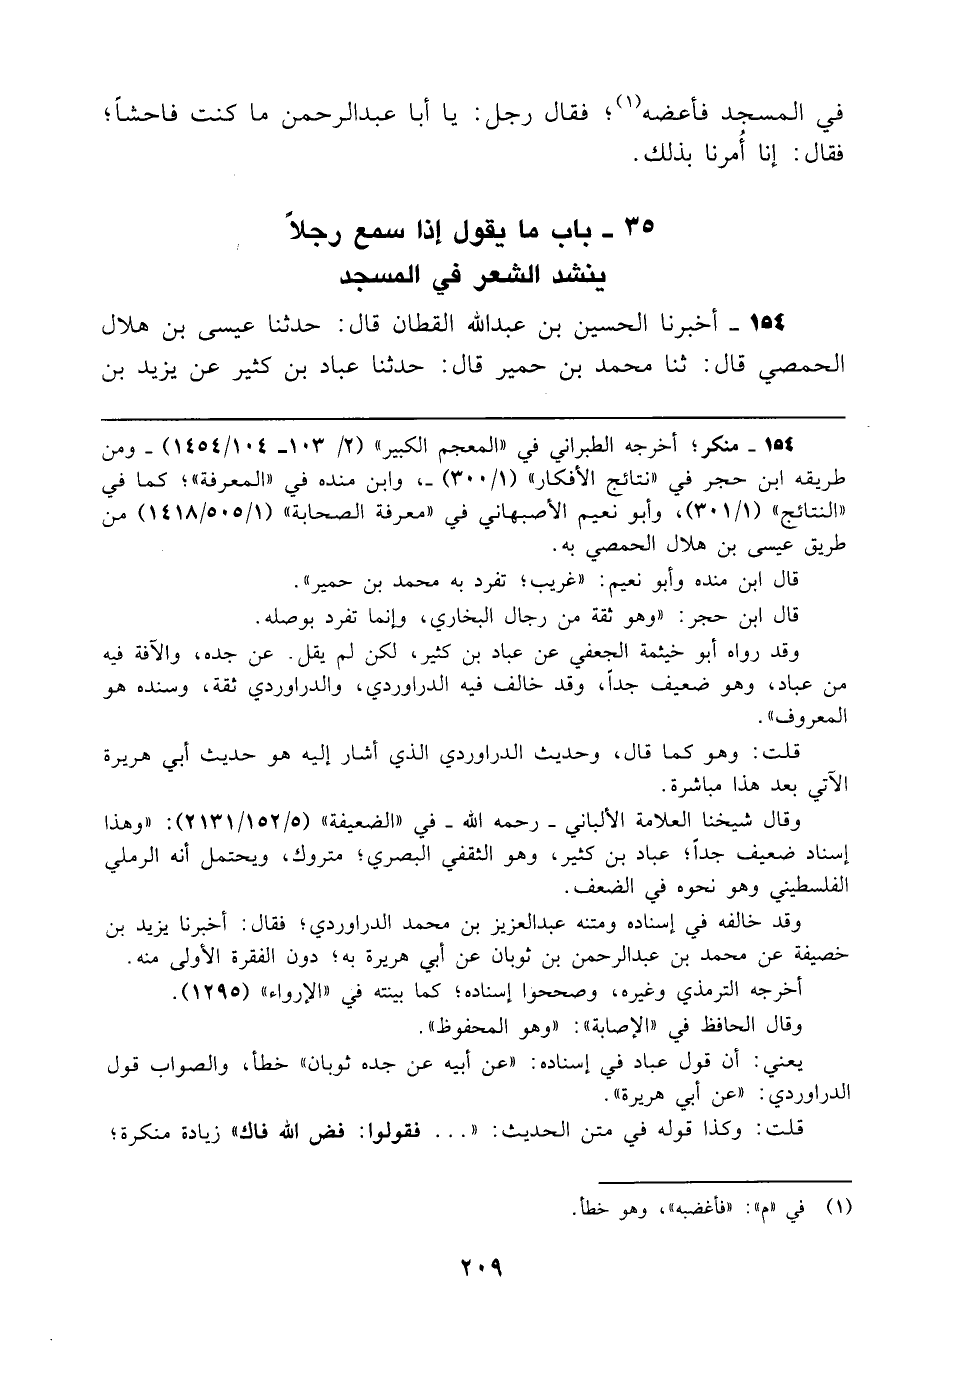 في المسجد فأعضه(١)؛ فقال رجل: يا أبا عبدالرحمن ما كنت فاحشاً؛
فقال: إنا أُمرنا بذلك.
٣٥ ـ باب ما يقول إذا سمع رجلاً
ينشد الشعر في المسجد
١٥٤ ـ أخبرنا الحسين بن عبدالله القطان قال: حدثنا عيسى بن هلال
الحمصي قال: ثنا محمد بن حمير قال: حدثنا عباد بن كثير عن يزيد بن
١٥٤ ـ منكر؛ أخرجه الطبراني في «المعجم الكبير» (٢/ ١٠٣ـ ١٤٥٤/١٠٤) ـ ومن
طريقه ابن حجر في «نتائج الأفكار» (٣٠٠/١) ـ، وابن منده في «المعرفة»؛ كما في
«النتائج» (٣٠١/١)، وأبو نعيم الأصبهاني في «معرفة الصحابة» (١٤١٨/٥٠٥/١) من
طريق عيسى بن هلال الحمصي به.
قال ابن منده وأبو نعيم: «غريب؛ تفرد به محمد بن حمير».
قال ابن حجر: «وهو ثقة من رجال البخاري، وإنما تفرد بوصله.
وقد رواه أبو خيثمة الجعفي عن عباد بن كثير، لكن لم يقل. عن جده، والآفة فيه
من عباد، وهو ضعيف جداً، وقد خالف فيه الدراوردي، والدراوردي ثقة، وسنده هو
المعروف».
قلت: وهو كما قال، وحديث الدراوردي الذي أشار إليه هو حديث أبي هريرة
الآتي بعد هذا مباشرة.
وقال شيخنا العلامة الألباني ـ رحمه الله ـ في «الضعيفة» (٢١٣١/١٥٢/٥): «وهذا
إسناد ضعيف جداً؛ عباد بن كثير، وهو الثقفي البصري؛ متروك، ويحتمل أنه الرملي
الفلسطيني وهو نحوه في الضعف.
وقد خالفه في إسناده ومتنه عبدالعزيز بن محمد الدراوردي؛ فقال: أخبرنا يزيد بن
خصيفة عن محمد بن عبدالرحمن بن ثوبان عن أبي هريرة به؛ دون الفقرة الأولى منه.
أخرجه الترمذي وغيره، وصححوا إسناده؛ كما بينته في «الإرواء» (١٢٩٥).
وقال الحافظ في «الإصابة»: «وهو المحفوظ».
يعني: أن قول عباد في إسناده: «عن أبيه عن جده ثوبان» خطأ، والصواب قول
الدراوردي: «عن أبي هريرة».
قلت: وكذا قوله في متن الحديث: «... فقولوا: فض الله فاك» زيادة منكرة؛
(١) في «م»: «فأغضبه»، وهو خطأ.
٢٠٩